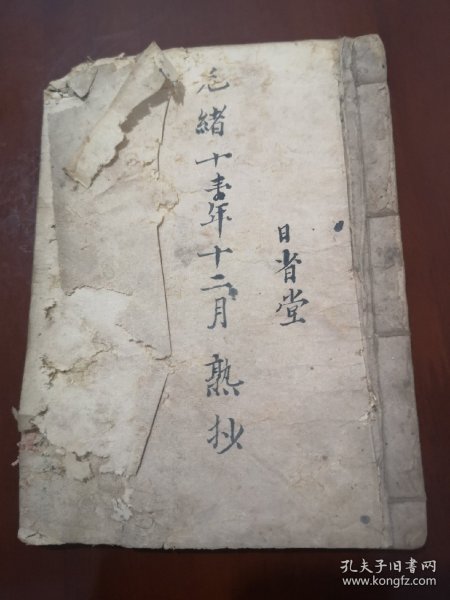 日省堂
光緒十年十二月熟抄
孔夫子旧书网
www.kongfz.com